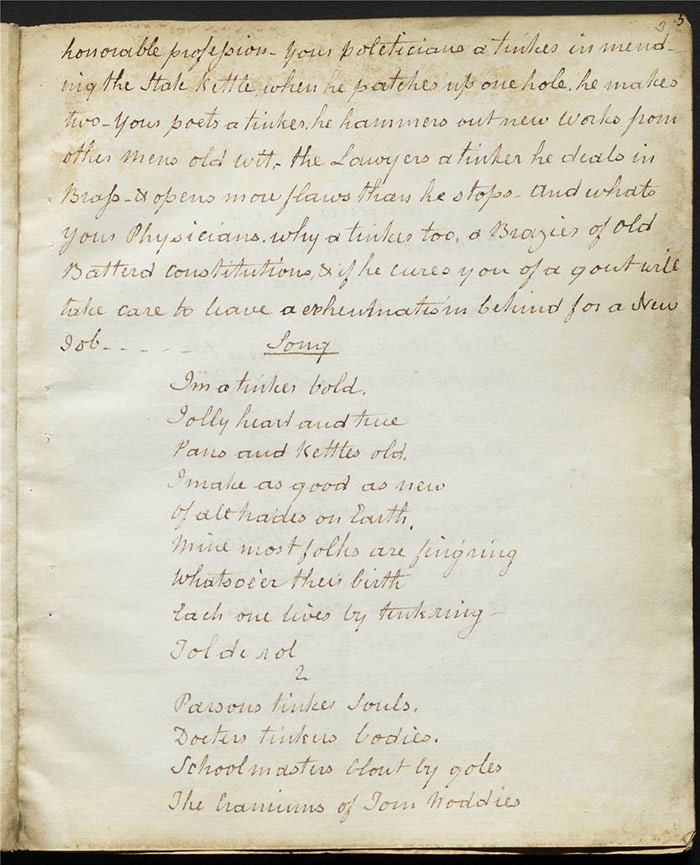 3
honorable profession - Your politicians a tinker in mend-
ing the State Kettle, when he patches up one hole, he makes
two - Your poets a tinker, he hammers out new works from
other mens old wit, the Lawyers a tinker he deals in
Brass - & opens more flaws than he stops - and whats
your Physicians. why a tinker too, a Brazier of old
Batterd constitutions, & if he cures you of a gout will
take care to leave a rheumatism behind for a New
Job - - - - Song
I'm a tinker bold,
Jolly heart and true
Pans and Kettles old,
I make as good as new
Of all trades on Earth,
Mine most folks are fingring
Whatsoe'er their birth
Each one lives by tinkring -
Tol de rol
2
Parsons tinker Souls,
Docters tinkers bodies.
Schoolmasters clout by
The Craniums of Tom Noddies